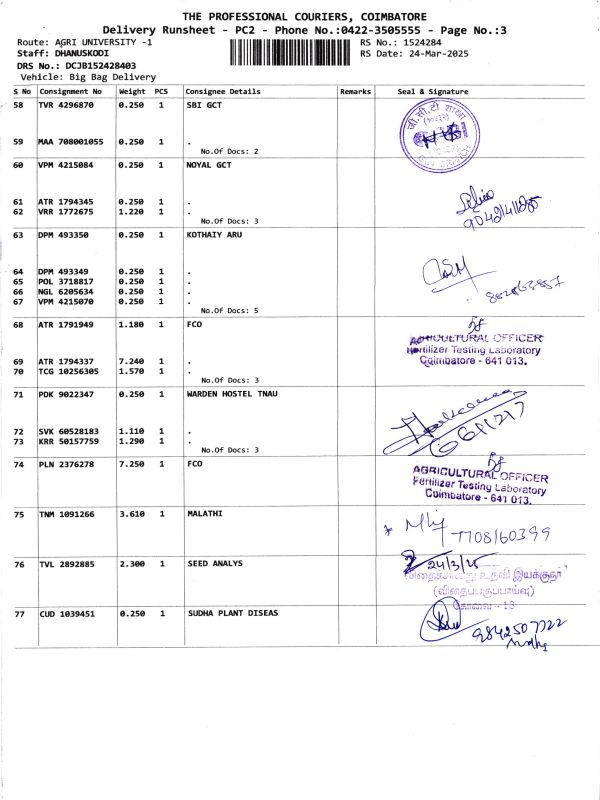 THE PROFESSIONAL COURIERS, COIMBATORE
Delivery Runsheet - PC2 - Phone No.:0422-3505555 - Page No.:3
Route: AGRI UNIVERSITY -1 RS No.: 1524284
Staff: DHANUSKODI RS Date: 24-Mar-2025
DRS No.: DCJB152428403
Vehicle: Big Bag Delivery
S No Consignment No Weight PCS Consignee Details Remarks Seal & Signature
58 TVR 4296870 0.250 1 SBI GCT
59 MAA 708001055 0.250 1 .
No.Of Docs: 2
60 VPM 4215084 0.250 1 NOYAL GCT
61 ATR 1794345 0.250 1 .
62 VRR 1772675 1.220 1 .
No.Of Docs: 3
63 DPM 493350 0.250 1 KOTHAIY ARU
64 DPM 493349 0.250 1 .
65 POL 3718817 0.250 1 .
66 NGL 6205634 0.250 1 .
67 VPM 4215070 0.250 1 .
No.Of Docs: 5
68 ATR 1791949 1.180 1 FCO
AGRICULTURAL OFFICER
Fertilizer Testing Laboratory
Coimbatore - 641 013.
69 ATR 1794337 7.240 1 .
70 TCG 10256305 1.570 1 .
No.Of Docs: 3
71 PDK 9022347 0.250 1 WARDEN HOSTEL TNAU
72 SVK 60528183 1.110 1 .
73 KRR 50157759 1.290 1 .
No.Of Docs: 3
74 PLN 2376278 7.250 1 FCO
AGRICULTURAL OFFICER
Fertilizer Testing Laboratory
Coimbatore - 641 013.
75 TNM 1091266 3.610 1 MALATHI
7708160399
76 TVL 2892885 2.300 1 SEED ANALYS
24/3/25
உதவி இயக்குநர்
கோவை - 13
77 CUD 1039451 0.250 1 SUDHA PLANT DISEAS
9842507722